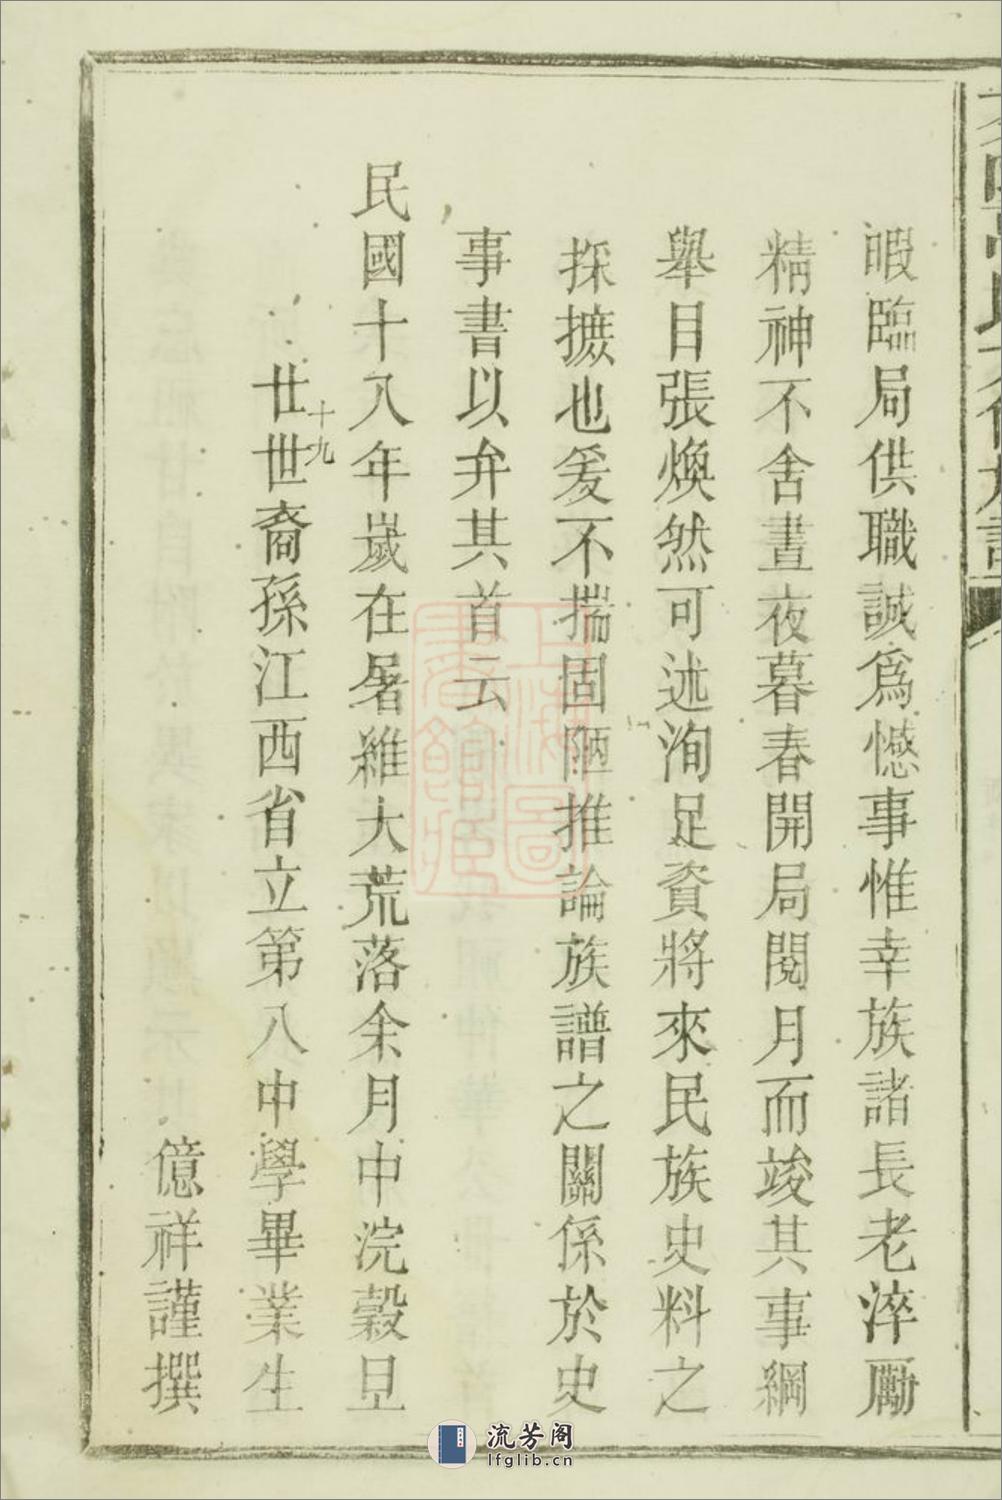 暇臨局供職誠爲憾事惟幸族諸長老淬勵
精神不舍晝夜暮春開局閱月而竣其事綱
舉目張煥然可述洵足資將來民族史料之
採摭也爰不揣固陋推論族譜之關係於史
事書以弁其首云
民國十八年歲在屠維大荒落余月中浣穀旦
廿世裔孫江西省立第八中學畢業生
十九
億祥謹撰
上海圖書館藏
流芳阁
lfglib.cn